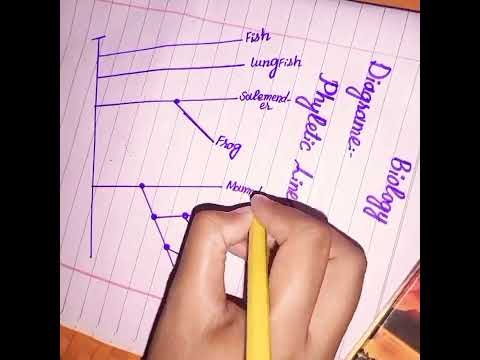 Biology
Diagrame:-
Phyletic Line
Fish
lungfish
Salemend-
er
Frog